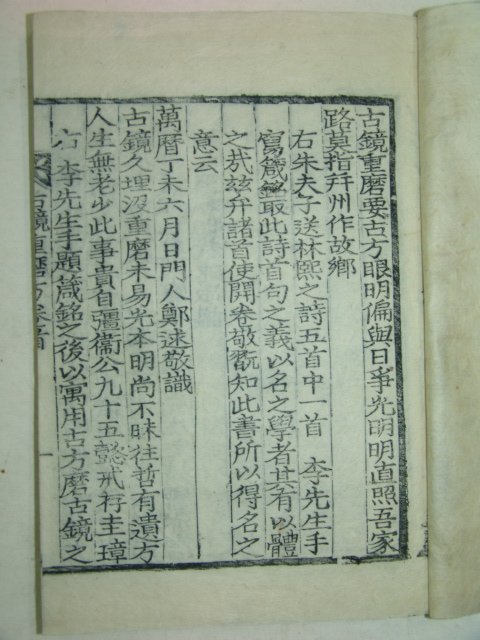 古鏡重磨要古方眼明偏與日爭光明明直照吾家
路莫指幷州作故鄉
右朱夫子送林熙之詩五首中一首　李先生手
寫箴銘取此詩首句之義以名之學者其有以體
之哉玆弁諸首使開卷敬翫知此書所以得名之
意云
萬曆丁未六月日門人鄭逑敬識
古鏡久埋沒重磨未易光本明尙不昧往哲有遺方
人生無老少此事貴自彊衞公九十五懿戒存圭璋
右　李先生手題箴銘之後以寓用古方磨古鏡之
古鏡重磨方